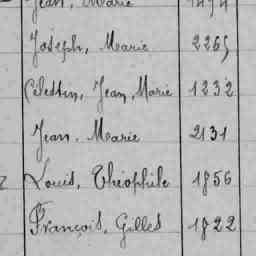 Jean, Marie 1494
Joseph, Marie 2265
Célestin, Jean, Marie 1232
Jean, Marie 2131
Louis, Théophile 1856
François, Gilles 1822